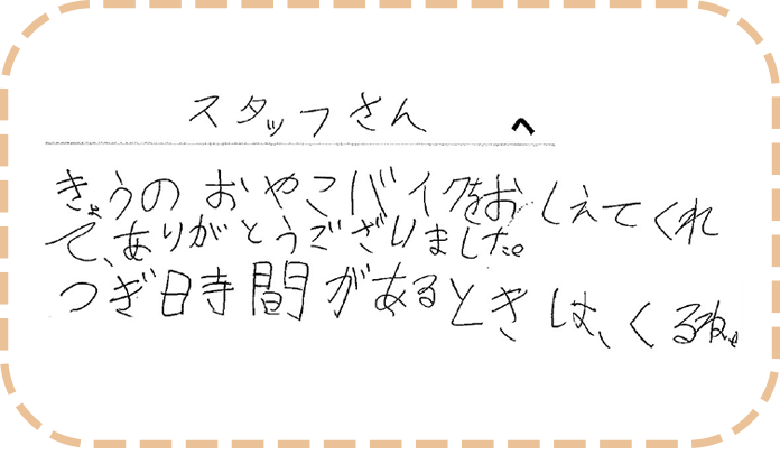 スタッフさん へ
きょうの おやこバイクをおしえてくれ
て、ありがとうございました。
つぎ日時間があるときは、くるね。